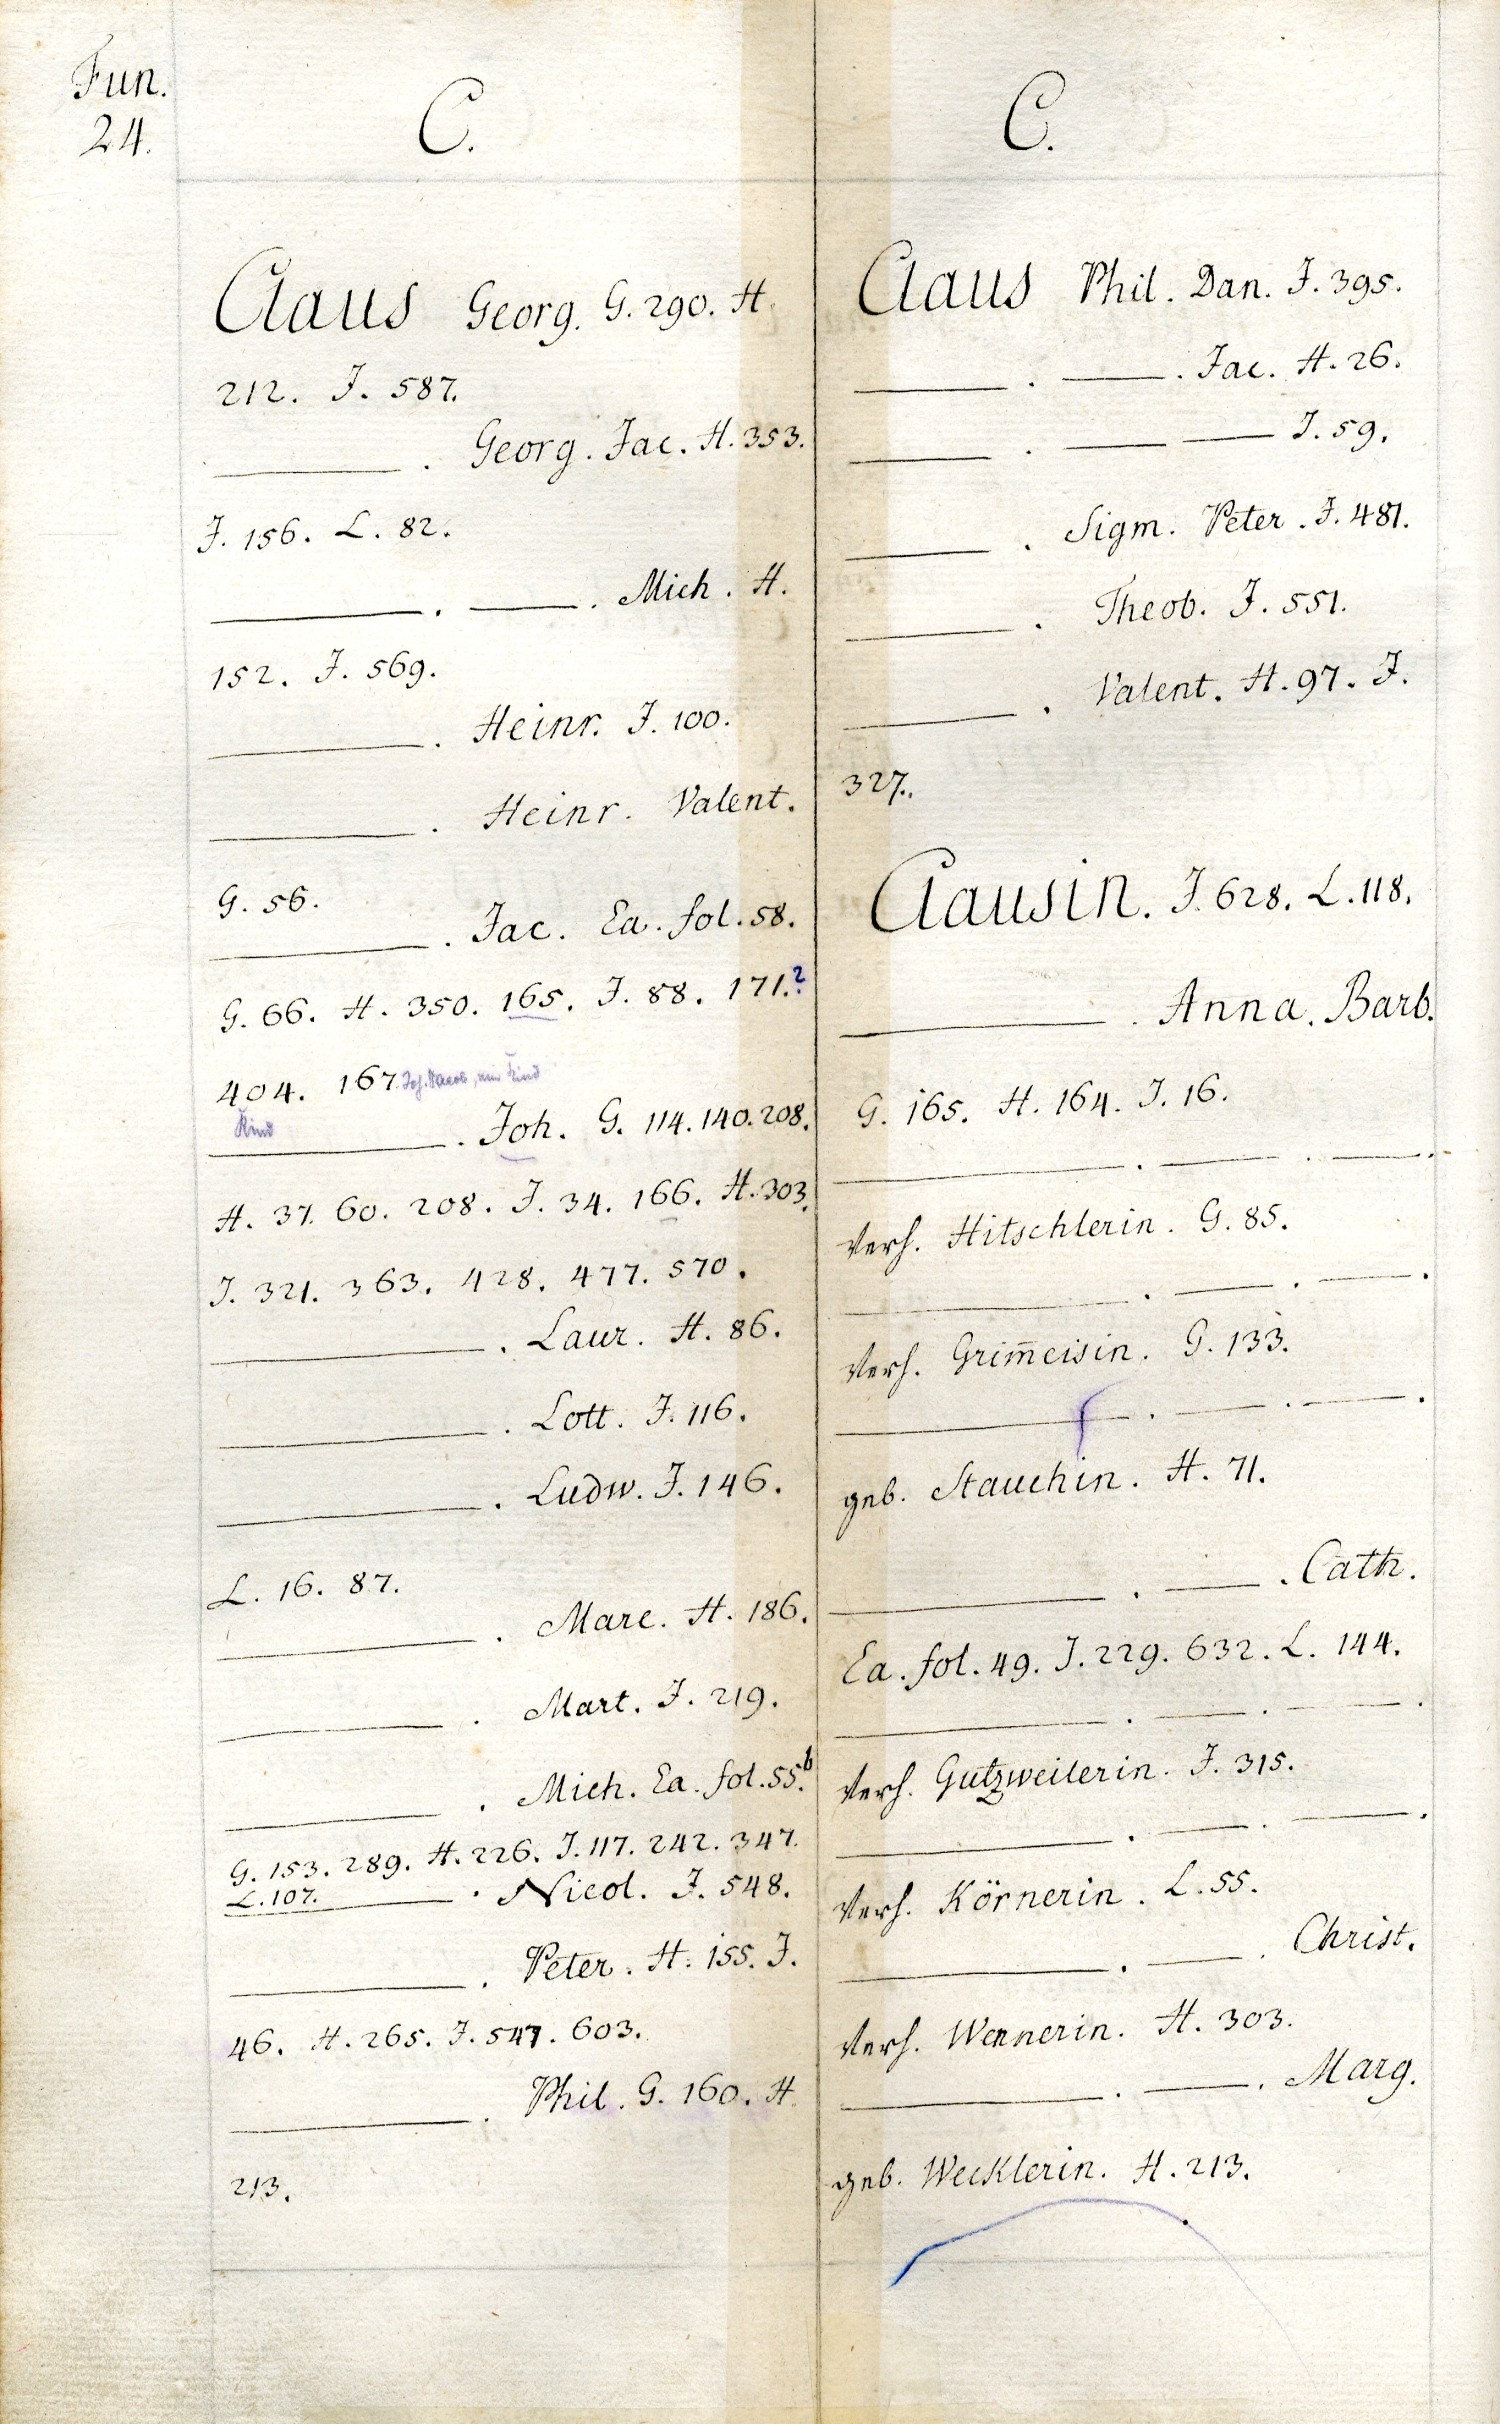 Fun.
24.
C.
Claus Georg. G. 290. H.
212. J. 587.
———. Georg. Jac. H. 353.
J. 156. L. 82.
———. ———. Mich. H.
152. J. 569.
———. Heinr. J. 100.
———. Heinr. Valent.
G. 56.
———. Jac. Ea. fol. 58.
G. 66. H. 350. 165. J. 88. 171.?
404. 167. Joh. Jacob, ein Kind
Kind
———. Joh. G. 114. 140. 208.
H. 37. 60. 208. J. 34. 166. H. 303.
J. 321. 363. 428. 477. 570.
———. Laur. H. 86.
———. Lott. J. 116.
———. Ludw. J. 146.
L. 16. 87.
———. Marc. H. 186.
———. Mart. J. 219.
———. Mich. Ea. fol. 55.b
G. 153. 289. H. 226. J. 117. 242. 347.
L. 107. ———. Nicol. J. 548.
———. Peter. H. 155. J.
46. H. 265. J. 547. 603.
———. Phil. G. 160. H.
213.
C.
Claus Phil. Dan. J. 395.
———. ———. Jac. H. 26.
———. ——— ——— J. 59.
———. Sigm. Peter. J. 481.
———. Theob. J. 551.
———. Valent. H. 97. J.
327.
Clausin. J. 628. L. 118.
———. Anna. Barb.
G. 165. H. 164. J. 16.
———. ———. ———.
verh. Hitschlerin. G. 85.
———. ———. ———.
verh. Grim̄eisin. G. 133.
———. ———. ———.
geb. Stauchin. H. 71.
———. ———. Cath.
Ea. fol. 49. J. 229. 632. L. 144.
———. ———. ———.
verh. Gutzweilerin. J. 315.
———. ———. ———.
verh. Körnerin. L. 55.
———. ———. Christ.
verh. Wennerin. H. 303.
———. ———. Marg.
geb. Wecklerin. H. 213.